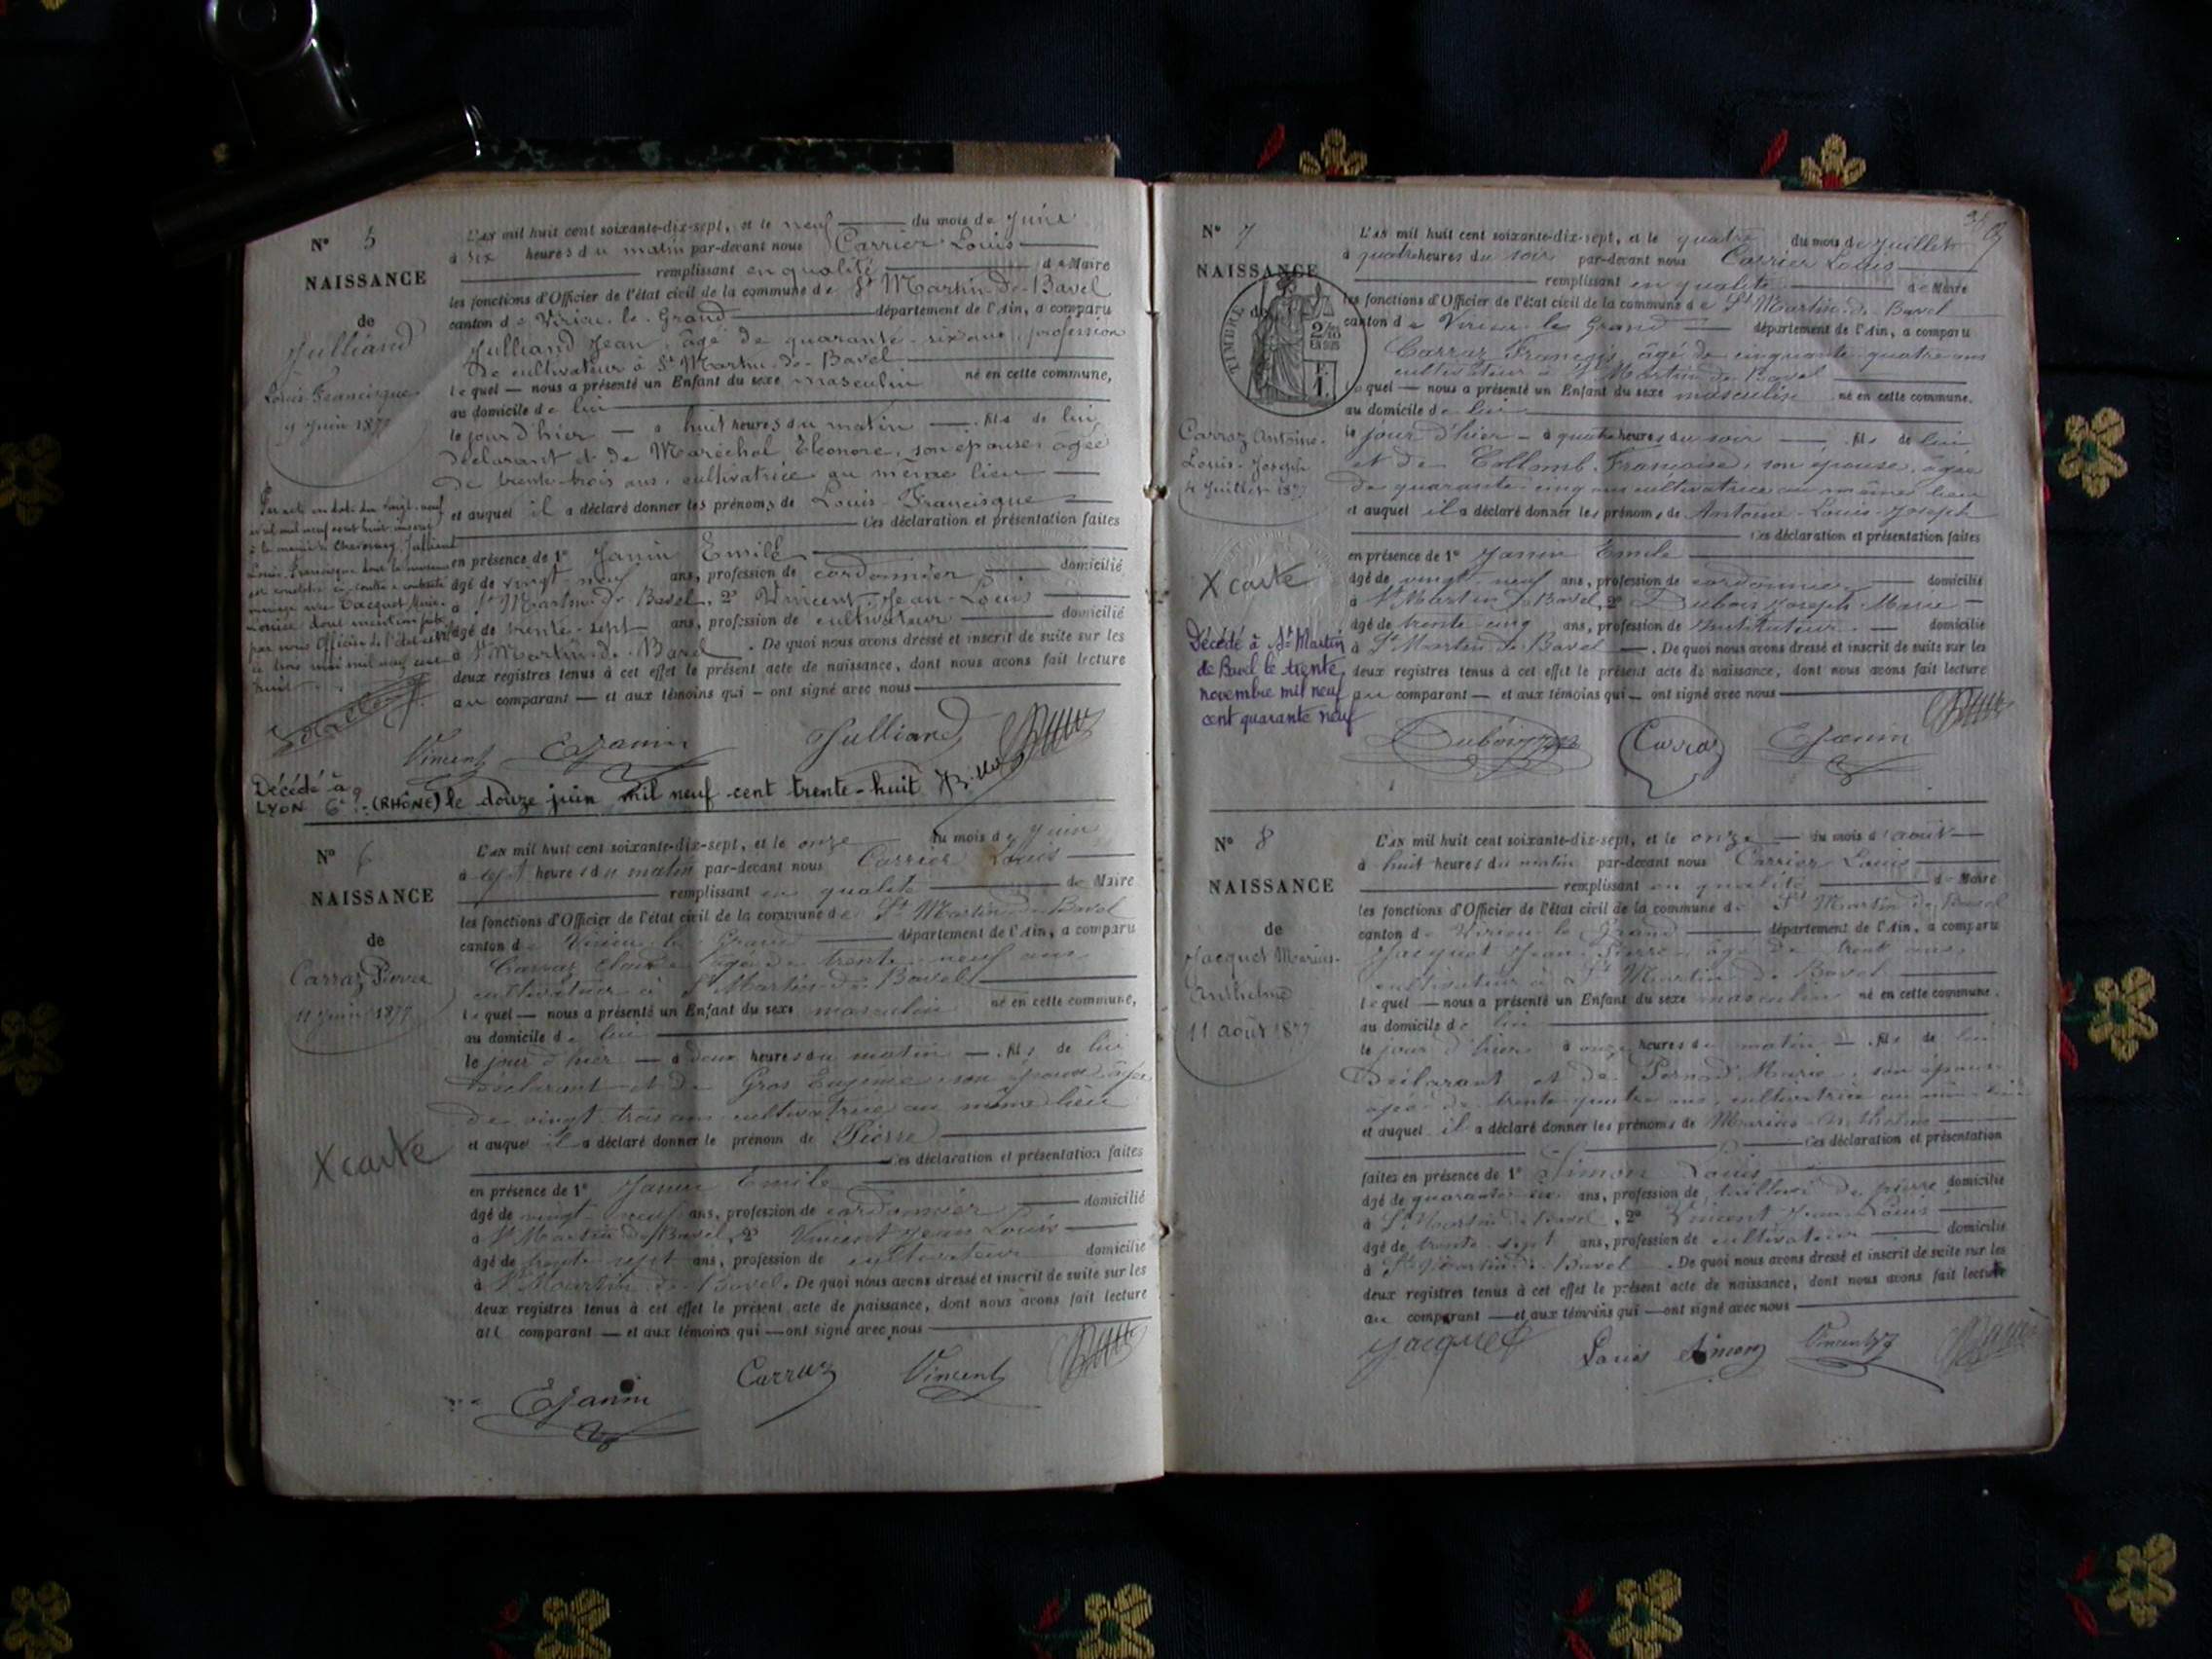 N° 5
NAISSANCE
de
Julliand
Louis Francisque
9 Juin 1877
L'an mil huit cent soixante-dix-sept, et le neuf du mois de Juin
à six heures du matin par-devant nous Carrier Louis
remplissant en qualité de Maire
les fonctions d'Officier de l'état civil de la commune de St Martin-de-Bavel
canton de Virieu-le-Grand département de l'Ain, a comparu
Julliand Jean, âgé de quarante-six ans, profession
de cultivateur à St Martin-de-Bavel
lequel — nous a présenté un Enfant du sexe masculin né en cette commune,
au domicile de lui
le jour d'hier — à huit heures du matin — fils de lui
déclarant et de Maréchal Eléonore, son épouse, âgée
de trente-trois ans, cultivatrice au même lieu
et auquel il a déclaré donner les prénoms de Louis-Francisque
Ces déclaration et présentation faites
en présence de 1° Janin Emile
âgé de vingt-neuf ans, profession de cordonnier domicilié
à St Martin-de-Bavel, 2° Vincent Jean-Louis
âgé de trente-sept ans, profession de cultivateur domicilié
à St Martin-de-Bavel. De quoi nous avons dressé et inscrit de suite sur les
deux registres tenus à cet effet le présent acte de naissance, dont nous avons fait lecture
au comparant — et aux témoins qui — ont signé avec nous
Par acte en date du vingt-neuf
avril mil neuf cent huit inscrit
à la mairie de Julliand
Louis Francisque dont la naissance
est constatée ci-contre a contracté
mariage avec Jacquet Marie-
Louise dont mention faite
par nous Officier de l'état civil
ce trois mai mil neuf cent
huit
Vincent EJanin Julliand
Décédé à
LYON 6e (RHÔNE) le douze juin mil neuf cent trente-huit
N° 6
NAISSANCE
de
Carraz Pierre
11 Juin 1877
L'an mil huit cent soixante-dix-sept, et le onze du mois de Juin
à sept heures du matin par-devant nous Carrier Louis
remplissant en qualité de Maire
les fonctions d'Officier de l'état civil de la commune de St Martin-de-Bavel
canton de Virieu-le-Grand département de l'Ain, a comparu
Carraz Claude âgé de trente-neuf ans
cultivateur à St Martin-de-Bavel
lequel — nous a présenté un Enfant du sexe masculin né en cette commune,
au domicile de lui
le jour d'hier — à deux heures du matin — fils de lui
déclarant et de Gros Eugénie, son épouse, âgée
de vingt-trois ans cultivatrice au même lieu
et auquel il a déclaré donner le prénom de Pierre
Ces déclaration et présentation faites
X carte
en présence de 1° Janin Emile
âgé de vingt-neuf ans, profession de cordonnier domicilié
à St Martin-de-Bavel, 2° Vincent Jean Louis
âgé de trente-sept ans, profession de cultivateur domicilié
à St Martin-de-Bavel. De quoi nous avons dressé et inscrit de suite sur les
deux registres tenus à cet effet le présent acte de naissance, dont nous avons fait lecture
au comparant — et aux témoins qui — ont signé avec nous
EJanin Carraz Vincent
N° 7
NAISSANCE
de
TIMBRE
2/10
EN SUS
1F.
Carraz Antoine-
Louis-Joseph
4 Juillet 1877
L'an mil huit cent soixante-dix-sept, et le quatre du mois de Juillet
à quatre heures du soir par-devant nous Carrier Louis
remplissant en qualité de Maire
les fonctions d'Officier de l'état civil de la commune de St Martin-de-Bavel
canton de Virieu-le-Grand département de l'Ain, a comparu
Carraz François, âgé de cinquante-quatre ans
cultivateur à St Martin-de-Bavel
lequel — nous a présenté un Enfant du sexe masculin né en cette commune,
au domicile de lui
le jour d'hier — à quatre heures du soir — fils de lui
et de Collomb Françoise, son épouse, âgée
de quarante-cinq ans cultivatrice au même lieu
et auquel il a déclaré donner les prénoms de Antoine-Louis-Joseph
Ces déclaration et présentation faites
X carte
en présence de 1° Janin Emile
âgé de vingt-neuf ans, profession de cordonnier domicilié
à St Martin-de-Bavel, 2° Dubois Joseph Marie
âgé de trente-cinq ans, profession de Instituteur domicilié
à St Martin-de-Bavel. De quoi nous avons dressé et inscrit de suite sur les
deux registres tenus à cet effet le présent acte de naissance, dont nous avons fait lecture
au comparant — et aux témoins qui — ont signé avec nous
Décédé à St Martin
de Bavel le trente
novembre mil neuf
cent quarante neuf
Dubois Carraz EJanin
N° 8
NAISSANCE
de
Jacquet Marius-
Anthelme
11 août 1877
L'an mil huit cent soixante-dix-sept, et le onze du mois d'août
à huit heures du matin par-devant nous Carrier Louis
remplissant en qualité de Maire
les fonctions d'Officier de l'état civil de la commune de St Martin-de-Bavel
canton de Virieu-le-Grand département de l'Ain, a comparu
Jacquet Jean-Pierre âgé de trente ans
cultivateur à St Martin-de-Bavel
lequel — nous a présenté un Enfant du sexe masculin né en cette commune,
au domicile de lui
le jour d'hier à onze heures du matin — fils de lui
déclarant et de Marie, son épouse
âgée de trente-quatre ans, cultivatrice au même lieu
et auquel il a déclaré donner les prénoms de Marius-Anthelme
Ces déclaration et présentation
faites en présence de 1° Simon Louis
âgé de quarante ans, profession de tailleur de pierre domicilié
à St Martin-de-Bavel, 2° Vincent Jean-Louis
âgé de trente-sept ans, profession de cultivateur domicilié
à St Martin-de-Bavel. De quoi nous avons dressé et inscrit de suite sur les
deux registres tenus à cet effet le présent acte de naissance, dont nous avons fait lecture
au comparant — et aux témoins qui — ont signé avec nous
Jacquet Louis Simon Vincent